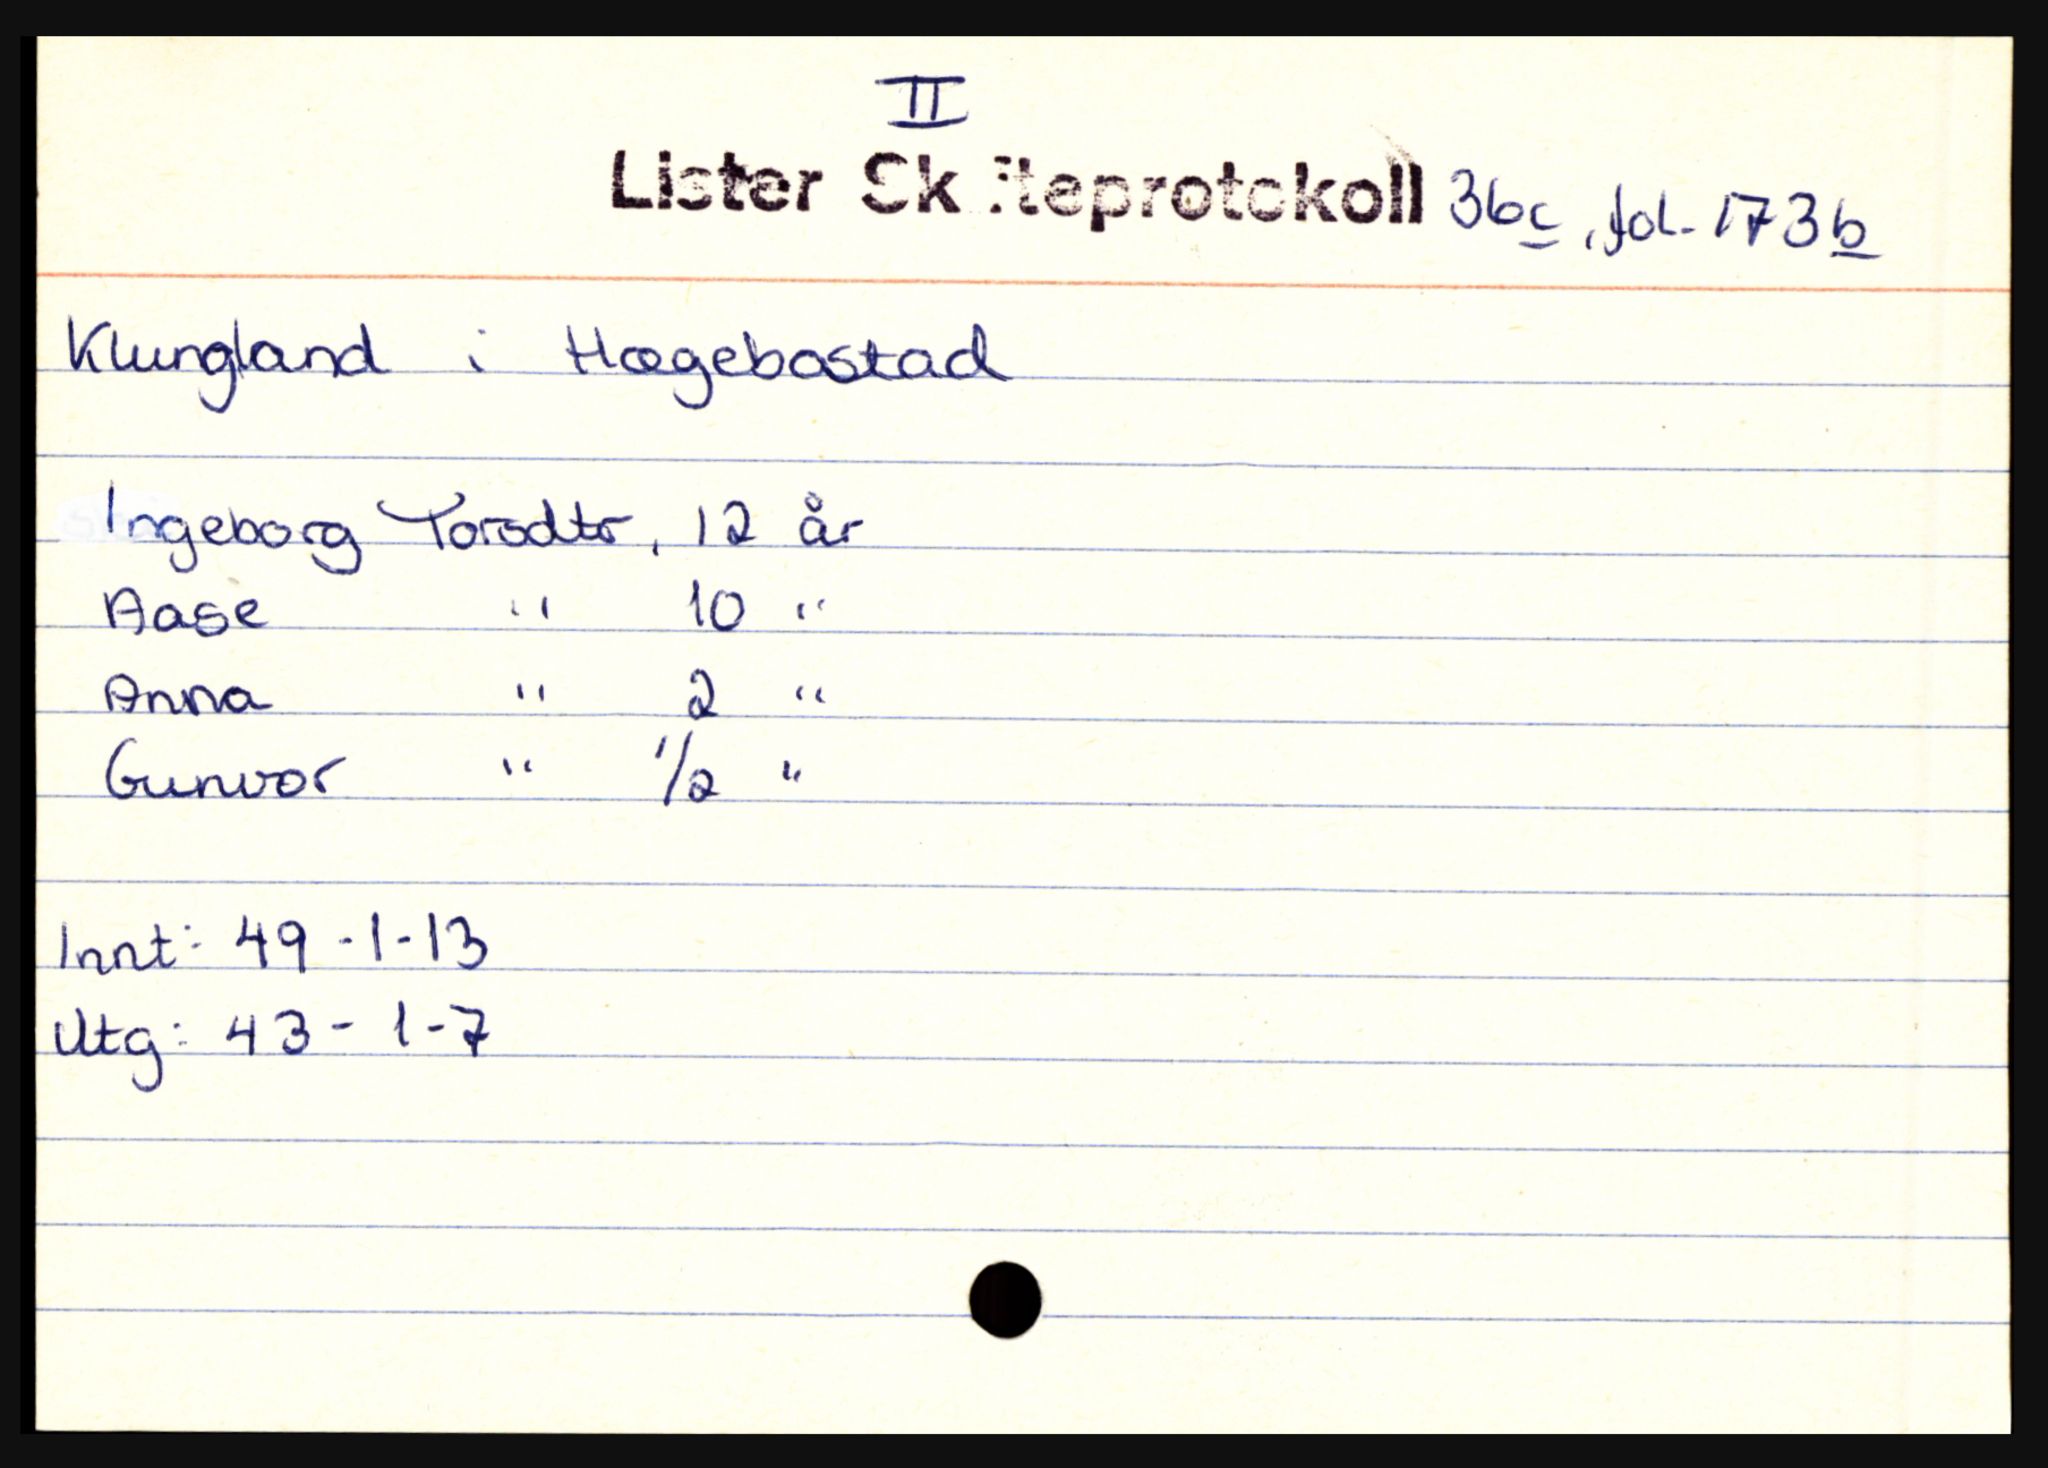 II
Lister Skifteprotokoll 36c, fol. 173b
Klungland i Hægebostad
Ingeborg Torsdtr, 12 år
Aase " 10 "
Anna " 2 "
Gunvor " 1/2 "
Innt: 49 - 1 - 13
Utg: 43 - 1 - 7